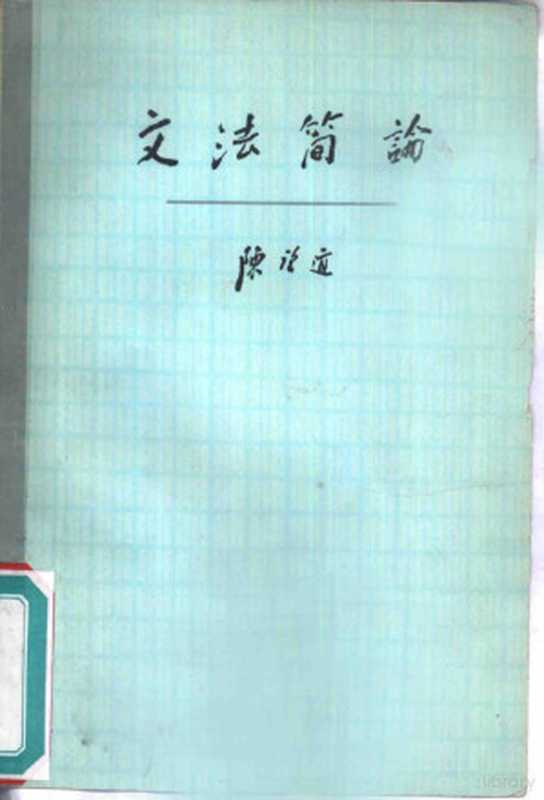 文法简論
陳望道
library